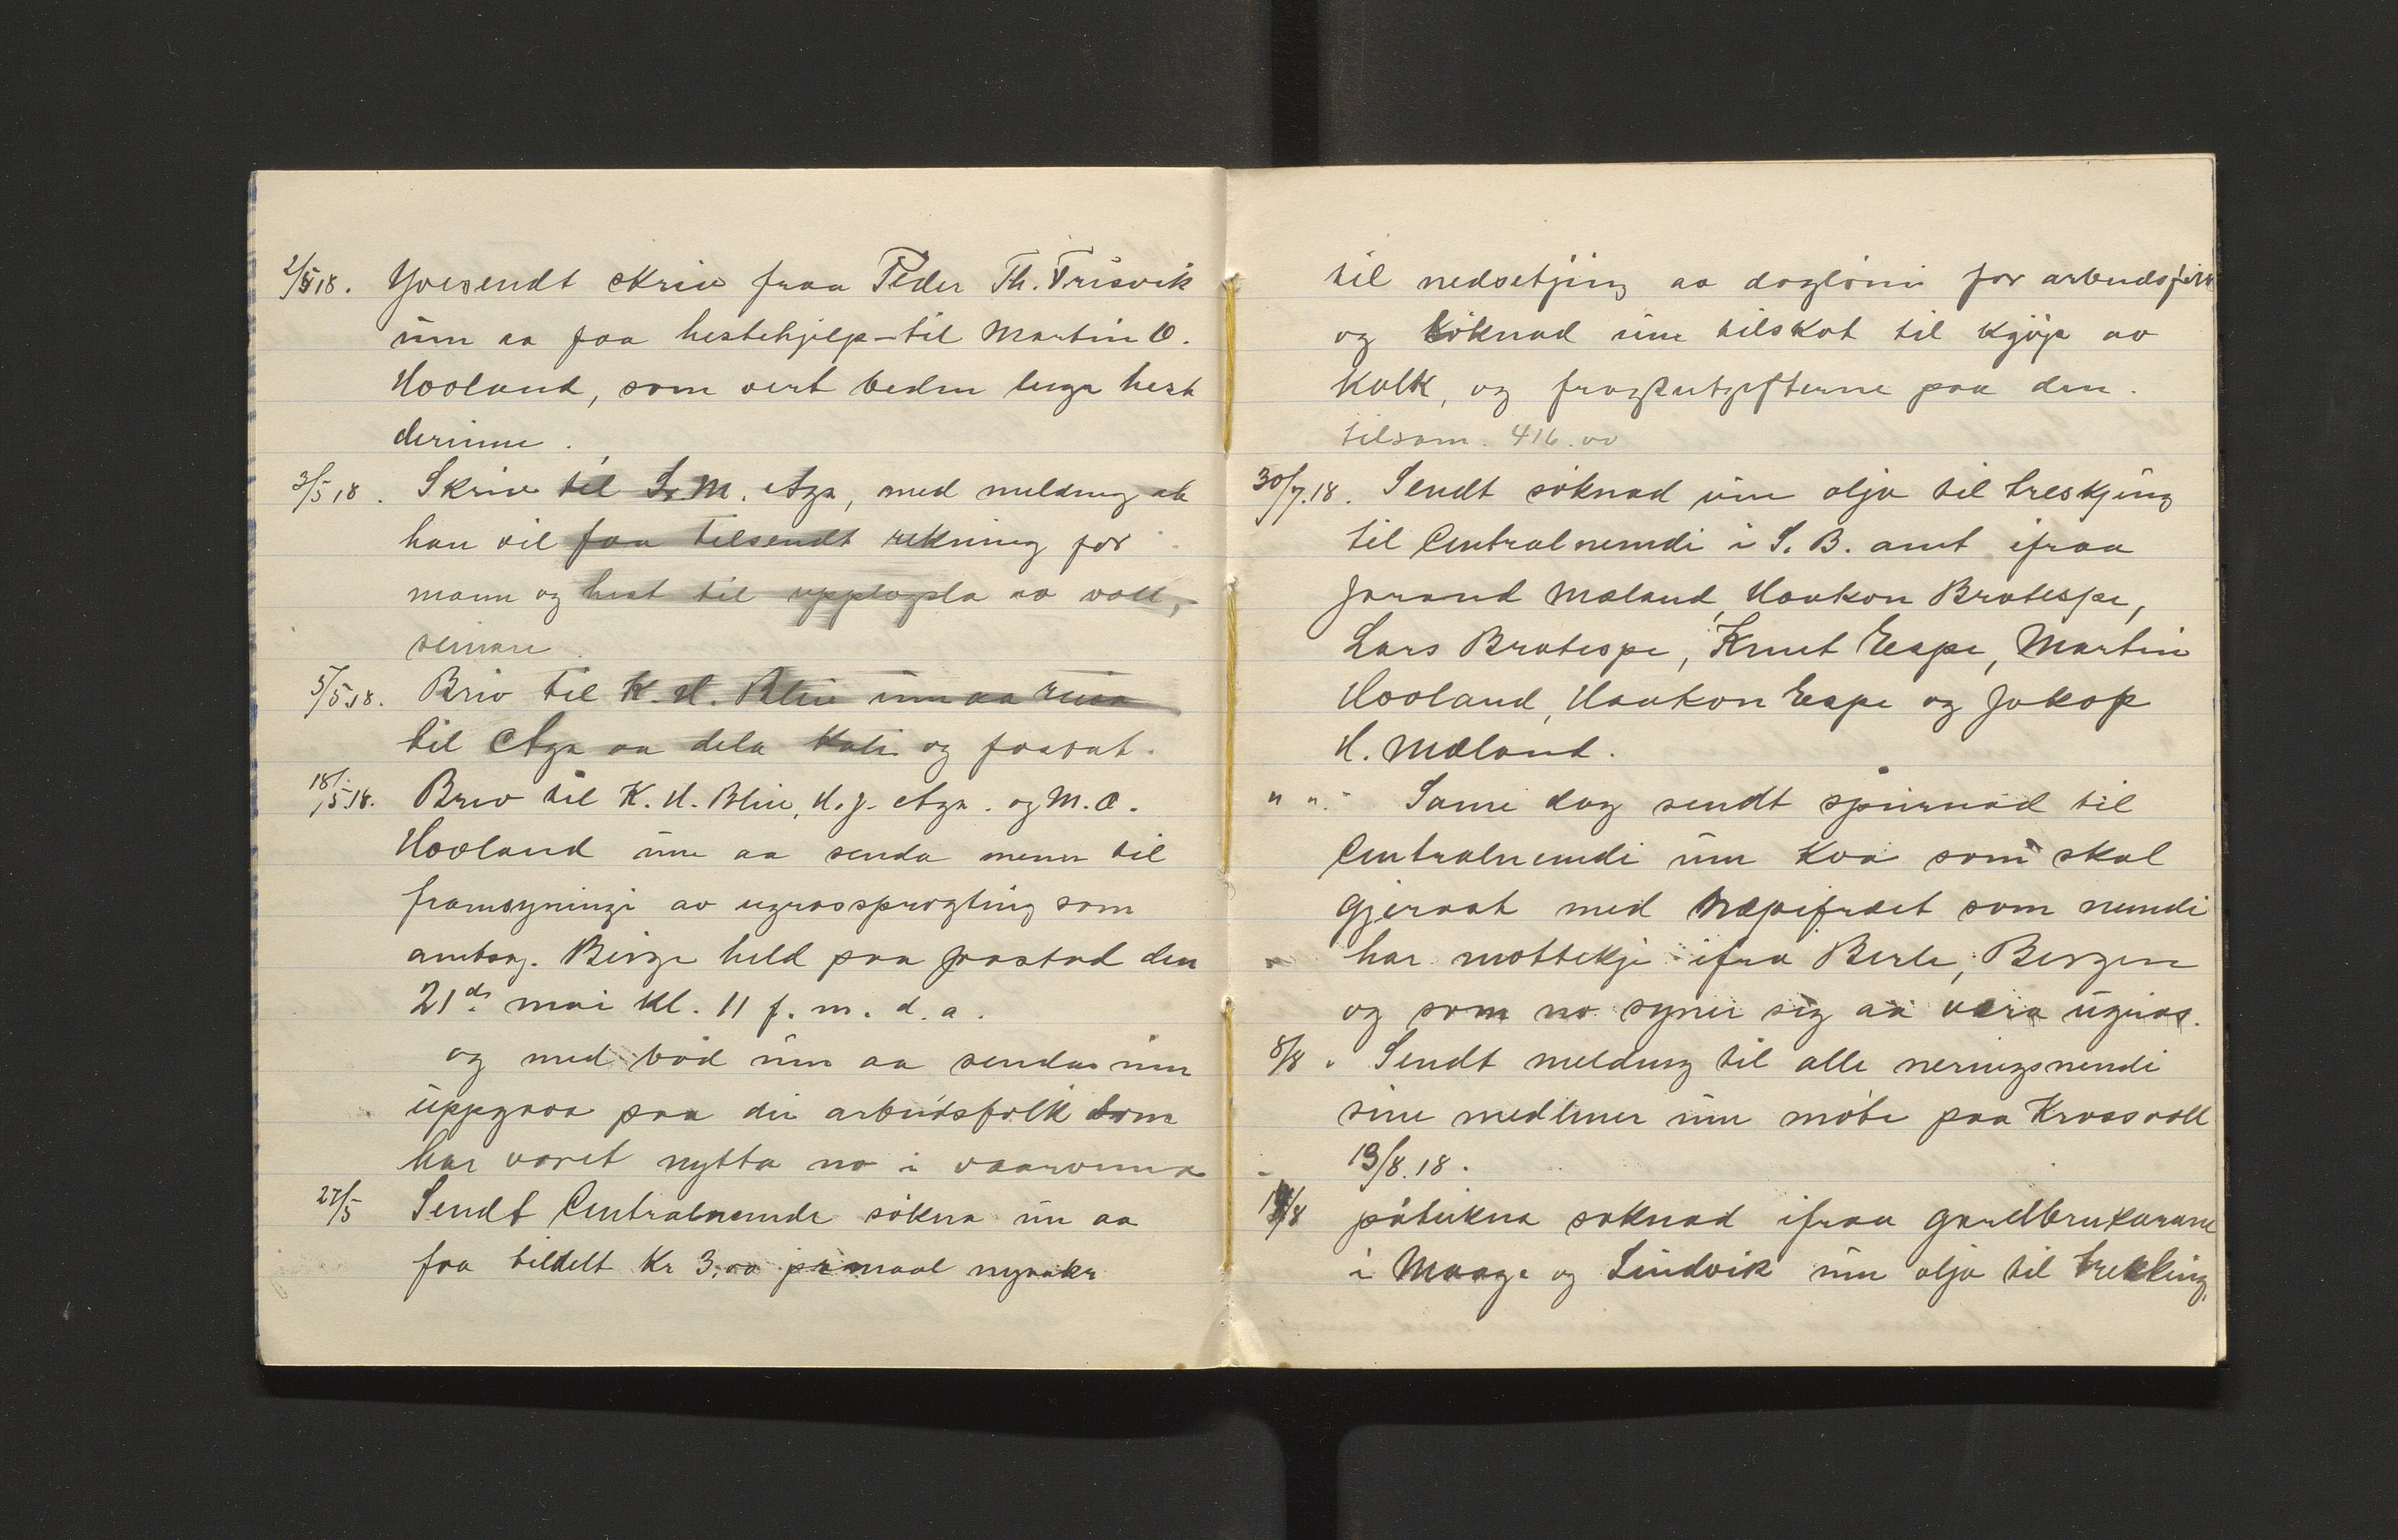 2/5 18. Yversendt skriv fraa Peder Th. Trisvik
um aa faa hestehjelp - til Martin O.
Hovland, som vert beden luga hest
derinne.
3/5 18. Skriv til S. M. Aga, med melding at
han vil faa tilsendt rekning for
mann og hest til upplogsla av voll,
seinare.
5/5 18. Briv til K. H. Blie um aa reisa
til Aga aa dela kali og fosvat.
18/5 18. Briv til K. H. Blie, H. J. Aga. og M. O.
Hovland um aa senda menn til
framsyningi av ugrassprøyting som
amtsag. Berge held paa Jaastad den
21de mai kl. 11 f. m. d. a.
og med bod um aa senda inn
uppgaava paa dei arbeidsfolk som
har voret nytta no i vaarvinna
27/5 Sendt Centralnemde søkna um aa
faa tildelt Kr 3,00 pr maal nyaaker
til nedsetjing av dagløni for arbeidsfolk
og søknad um tilskot til kjøp av
kalk, og fragtutgifterne paa den.
tilsam. 416.00
30/7.18. Sendt søknad um olja til treskjing
til Centralnemdi i S. B. amt ifraa
Jorand Mæland, Haakon Bratespe,
Lars Bratespe, Knut Espe, Martin
Hovland, Haakon Espe og Jakop
H. Mæland.
" " " Same dag sendt spurnad til
Centralnemdi um kva som skal
gjerast med Næpefræet som nemdi
har mottekje ifra Berle, Bergen
og som no syner sig aa vera ugras.
8/8 " Sendt melding til alle neringsnemdi
sine medlemer um møte paa Krossvoll
13/8.18.
14/8 påteikna søknad ifraa gardbrukarane
i Maage og Sandvik um olja til tresking,